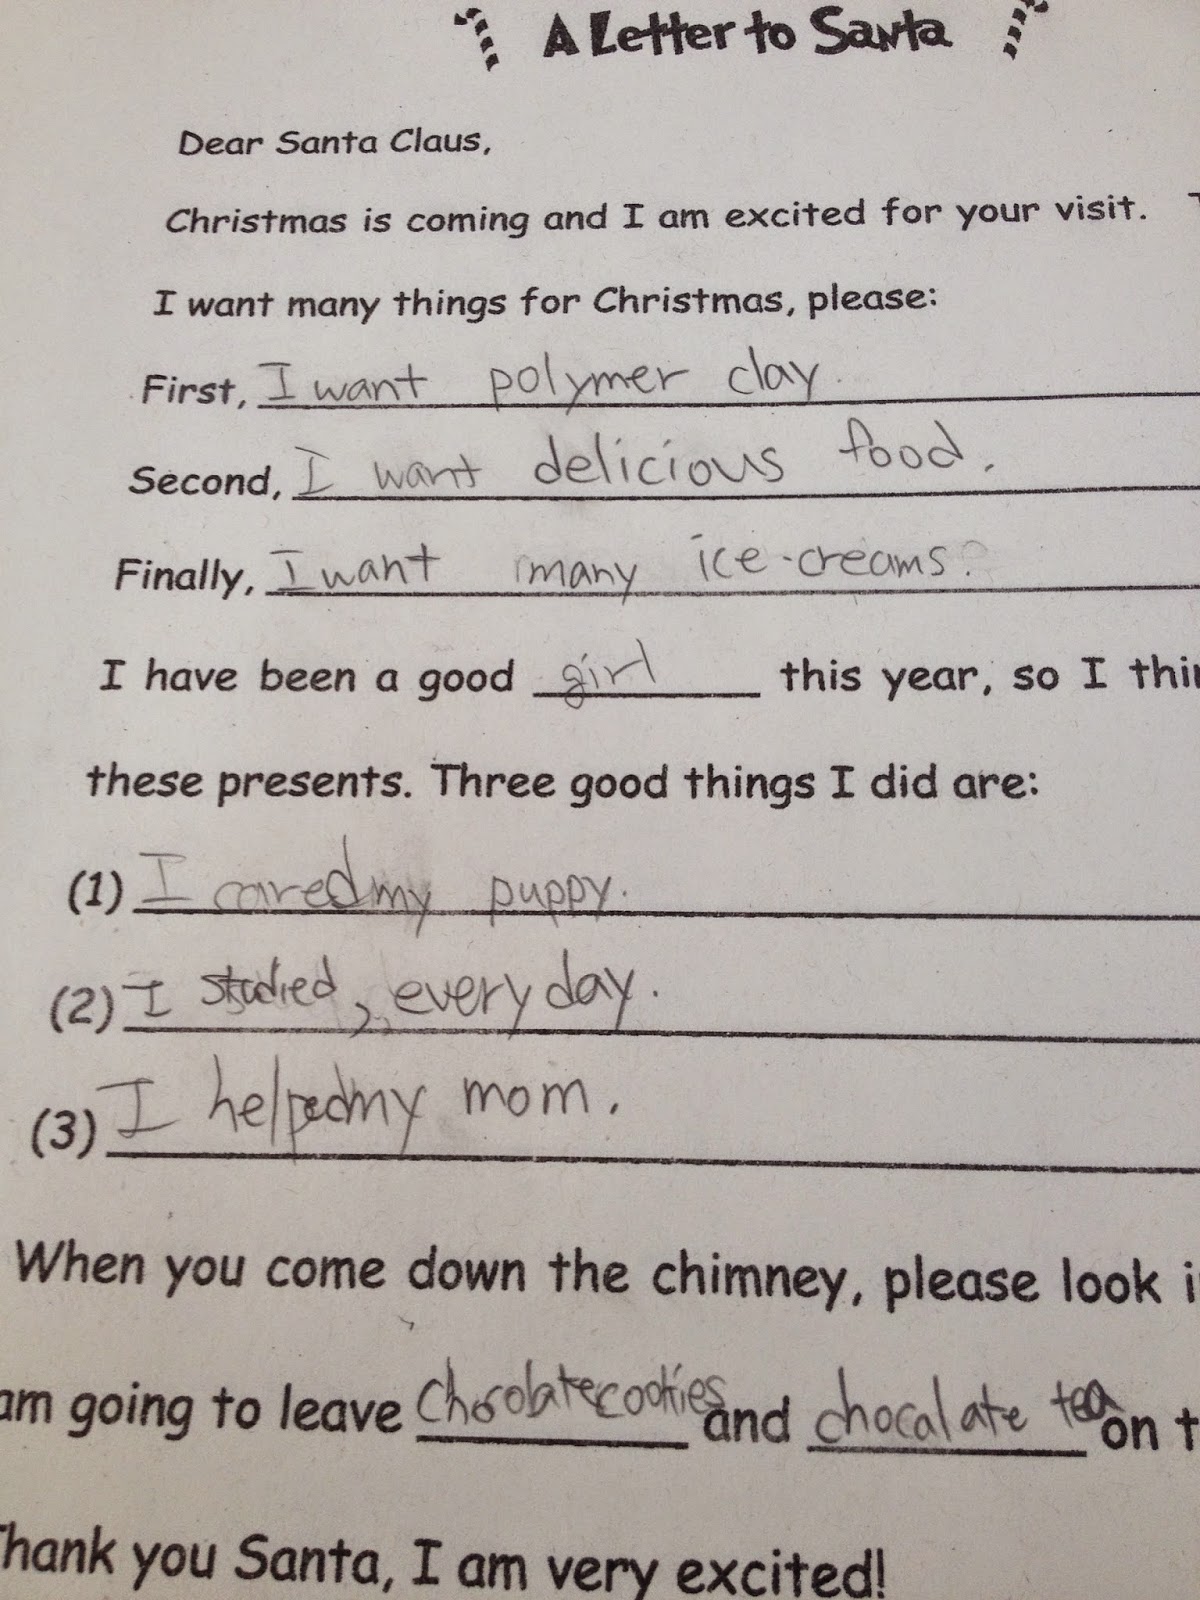 A Letter to Santa
Dear Santa Claus,
Christmas is coming and I am excited for your visit.
I want many things for Christmas, please:
First, I want polymer clay.
Second, I want delicious food.
Finally, I want many ice-creams.
I have been a good girl this year, so I thin
these presents. Three good things I did are:
(1) I cared my puppy.
(2) I studied, everyday.
(3) I helped my mom.
When you come down the chimney, please look i
am going to leave chocolate cookies and chocalate tea on t
Thank you Santa, I am very excited!